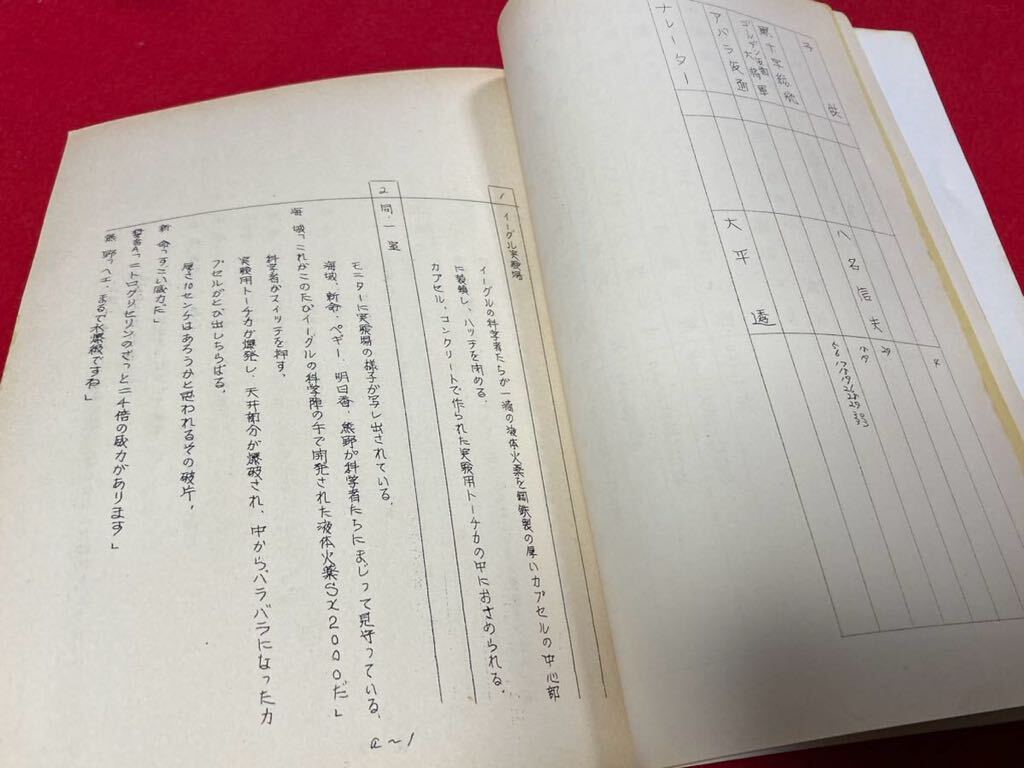 予告
黒十字総統 八名信夫
ゴールデン仮面大将軍
アバラ友遠
ナレーター 大平透
1 イーグル実験場
イーグルの科学者たちが一滴の液体火薬を鋼鉄製の厚いカプセルの中心部
に装填し、ハッチを閉める。
カプセル、コンクリートで作られた実験用トーチカの中におさめられる。
2 同・一室
モニターに実験場の様子が写し出されている。
海城、新命、ペギー、明日香、熊野が科学者たちにまじって見守っている。
海城「これがこのたびイーグルの科学陣の手で開発された液体火薬SX2000だ」
科学者がスイッチを押す。
実験用トーチカが爆発し、天井部分が爆破され、中から、バラバラになったカ
プセルがとび出しちらばる。
厚さ10センチはあろうかと思われるその破片。
新命「すごい威力だ」
「ニトログリセリンのざっと二千倍の威力があります」
熊野「ヘエ、まるで水爆級ですね」
a〜1